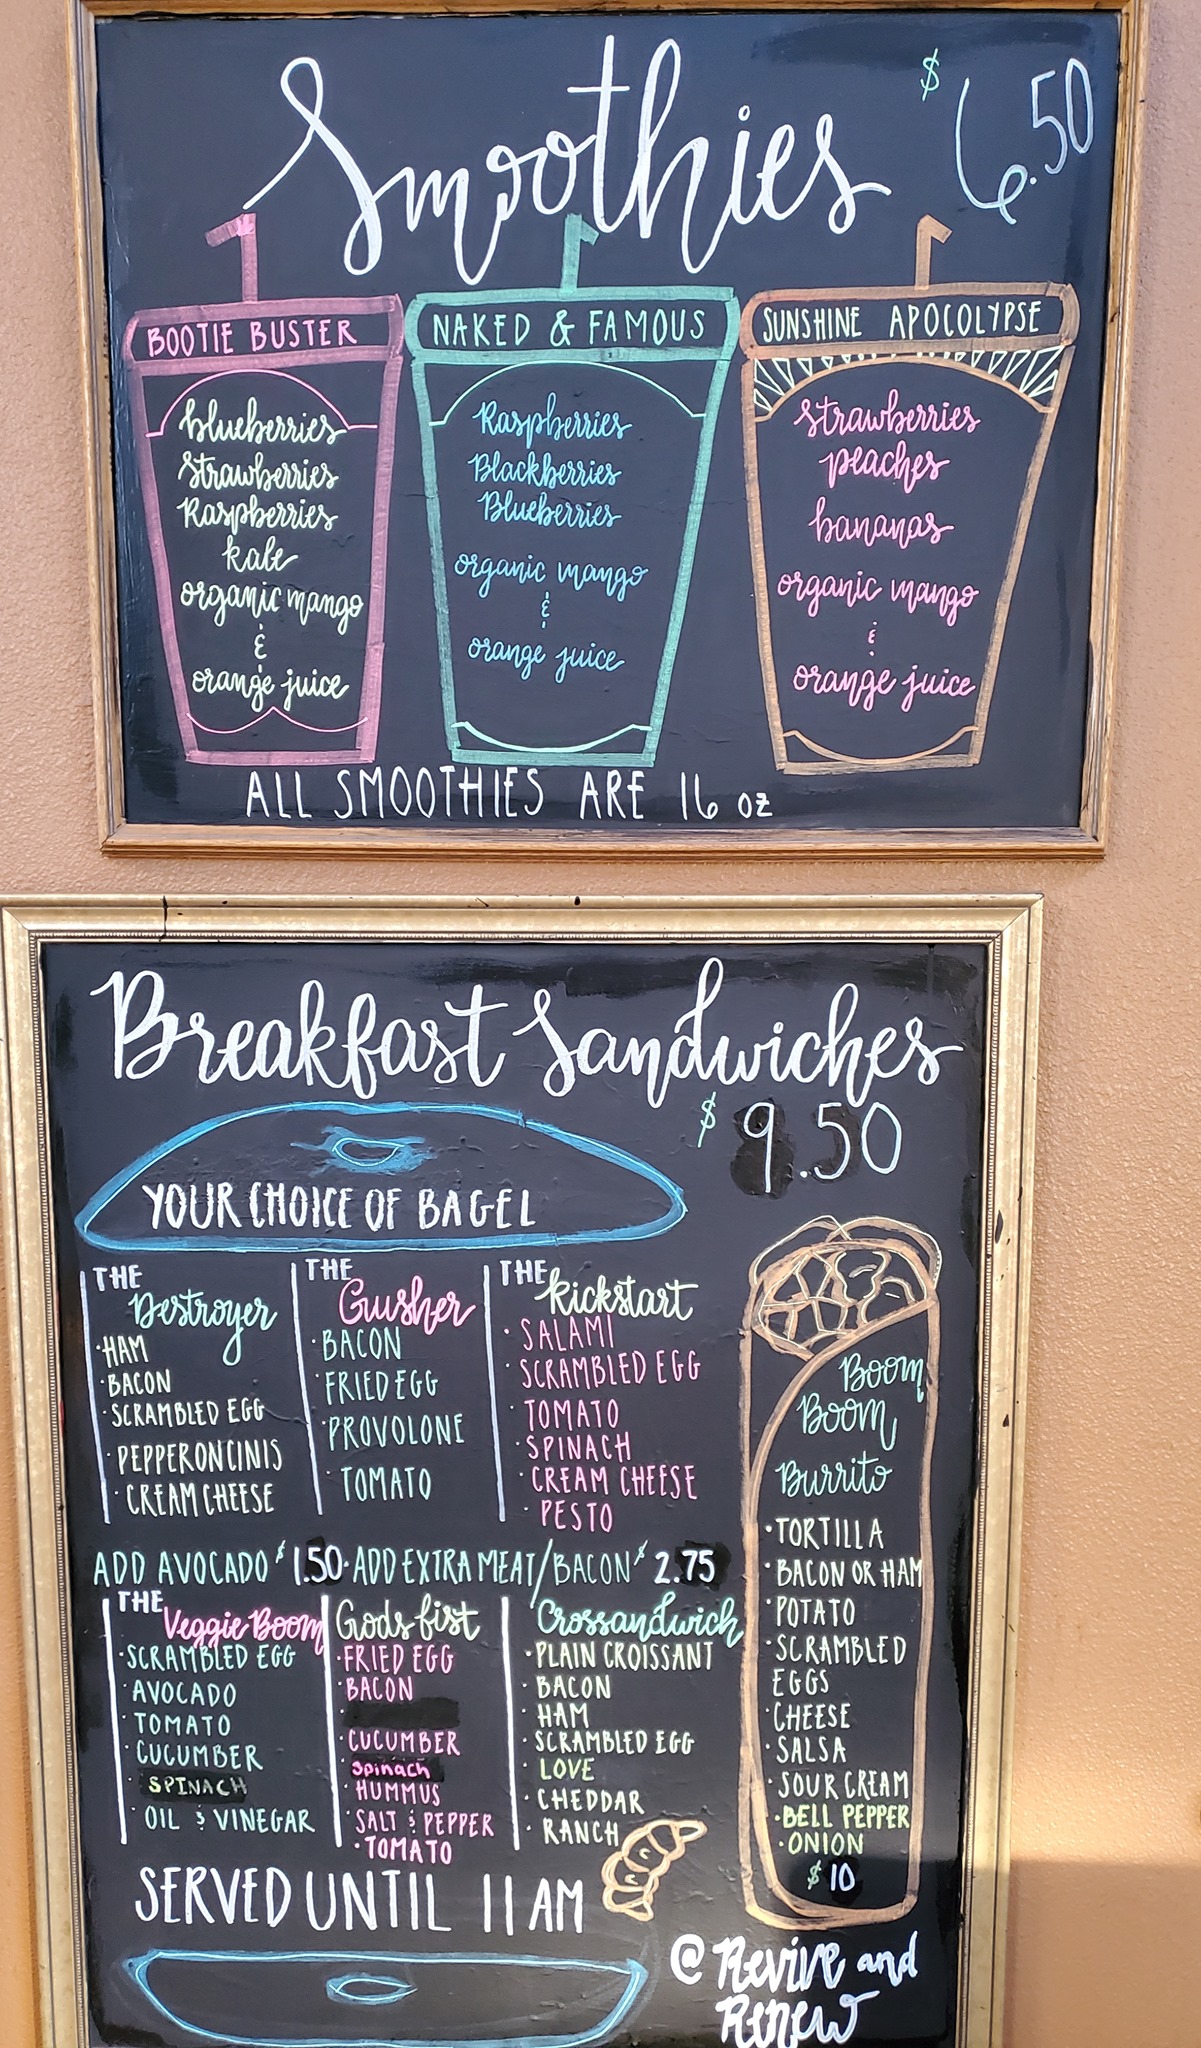 Smoothies $ 6.50
BOOTIE BUSTER
blueberries
Strawberries
Raspberries
kale
organic mango
&
orange juice
NAKED & FAMOUS
Raspberries
Blackberries
Blueberries
organic mango
&
orange juice
SUNSHINE APOCOLYPSE
strawberries
peaches
bananas
organic mango
&
orange juice
ALL SMOOTHIES ARE 16 oz
Breakfast Sandwiches
$ 9.50
YOUR CHOICE OF BAGEL
THE
Destroyer
· HAM
· BACON
· SCRAMBLED EGG
· PEPPERONCINIS
· CREAM CHEESE
THE
Gusher
· BACON
· FRIED EGG
· PROVOLONE
· TOMATO
THE
Kickstart
· SALAMI
· SCRAMBLED EGG
· TOMATO
· SPINACH
· CREAM CHEESE
· PESTO
ADD AVOCADO $ 1.50 · ADD EXTRA MEAT/BACON $ 2.75
THE
Veggie Boom
· SCRAMBLED EGG
· AVOCADO
· TOMATO
· CUCUMBER
· SPINACH
· OIL & VINEGAR
Gods fist
· FRIED EGG
· BACON
· CUCUMBER
· Spinach
· HUMMUS
· SALT & PEPPER
· TOMATO
Crossandwich
· PLAIN CROISSANT
· BACON
· HAM
· SCRAMBLED EGG
· LOVE
· CHEDDAR
· RANCH
Boom
Boom
Burrito
· TORTILLA
· BACON OR HAM
· POTATO
· SCRAMBLED
EGGS
· CHEESE
· SALSA
· SOUR CREAM
· BELL PEPPER
· ONION
$ 10
SERVED UNTIL 11 AM
@ Revive and
Renew